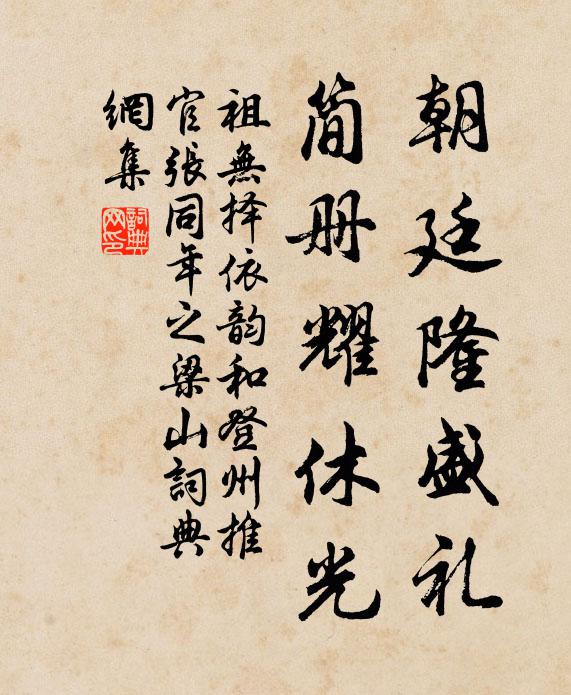 朝廷隆盛礼
简册耀休光
祖無择依韵和登州推
官張同年之梁山詞典
網集
詞典网印